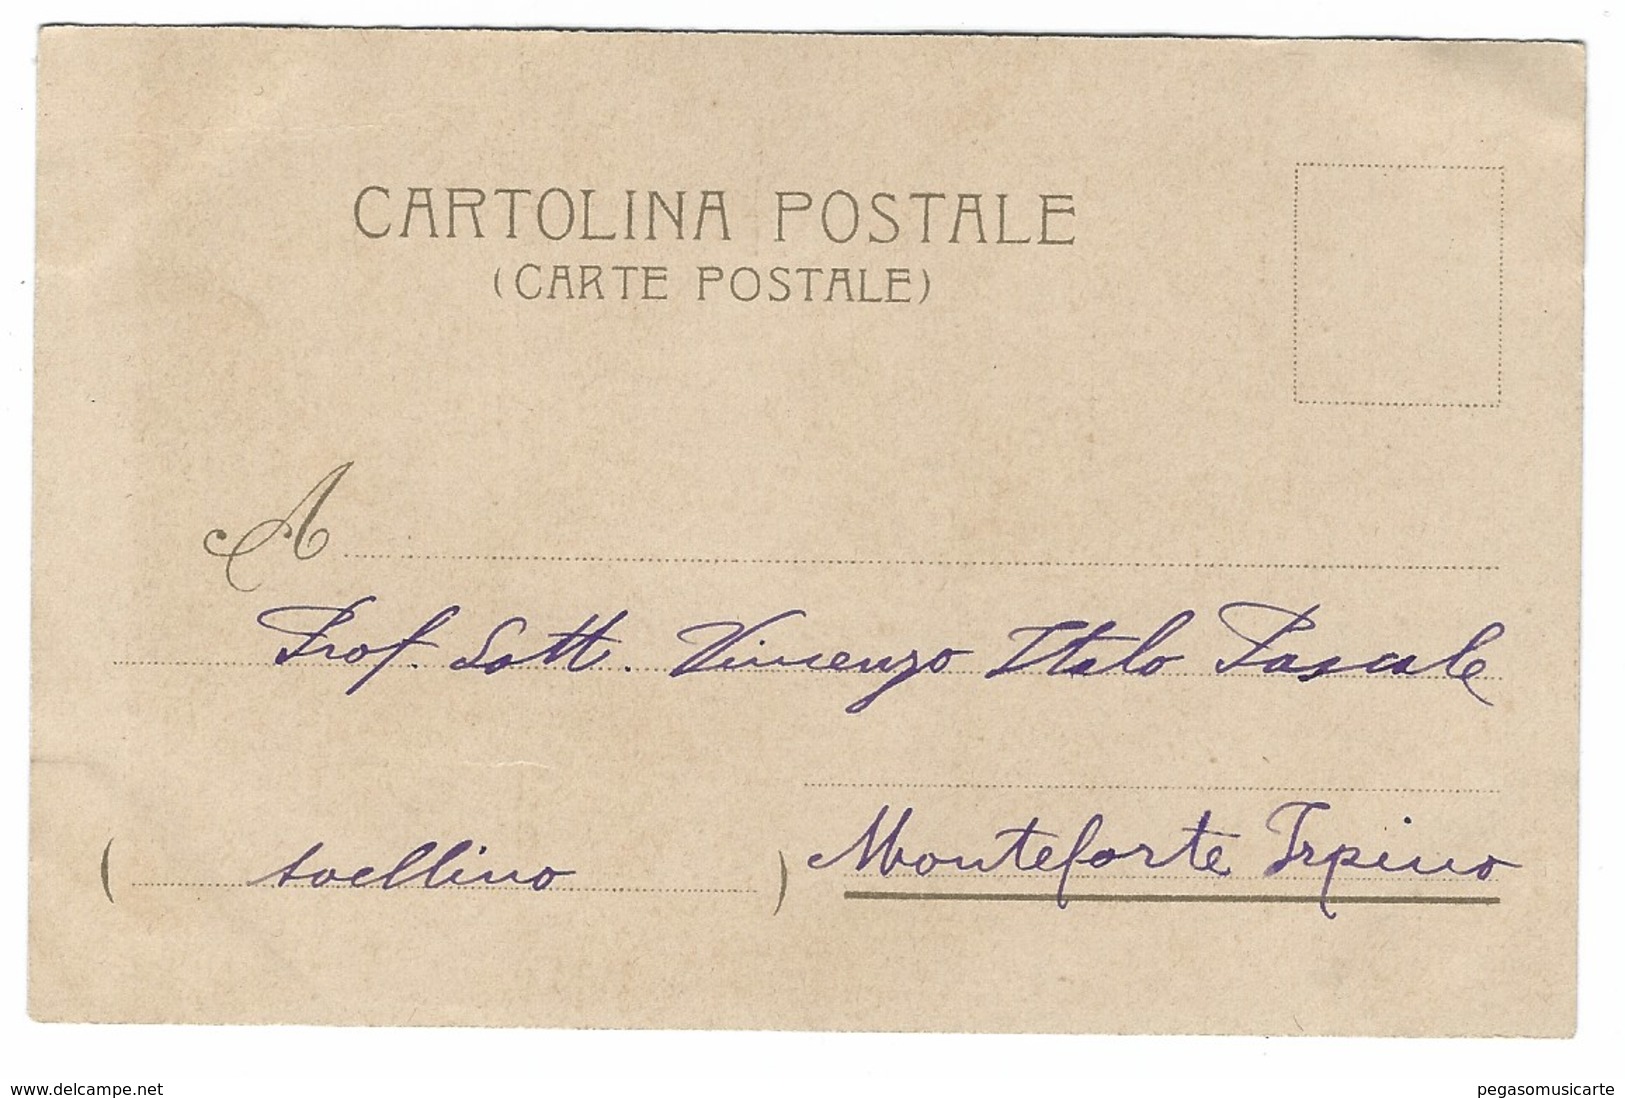 CARTOLINA POSTALE
(CARTE POSTALE)
A
Prof. Dott. Vincenzo Italo Pascale
( Avellino ) Monteforte Irpino
www.delcampe.net
pegasomusicarte